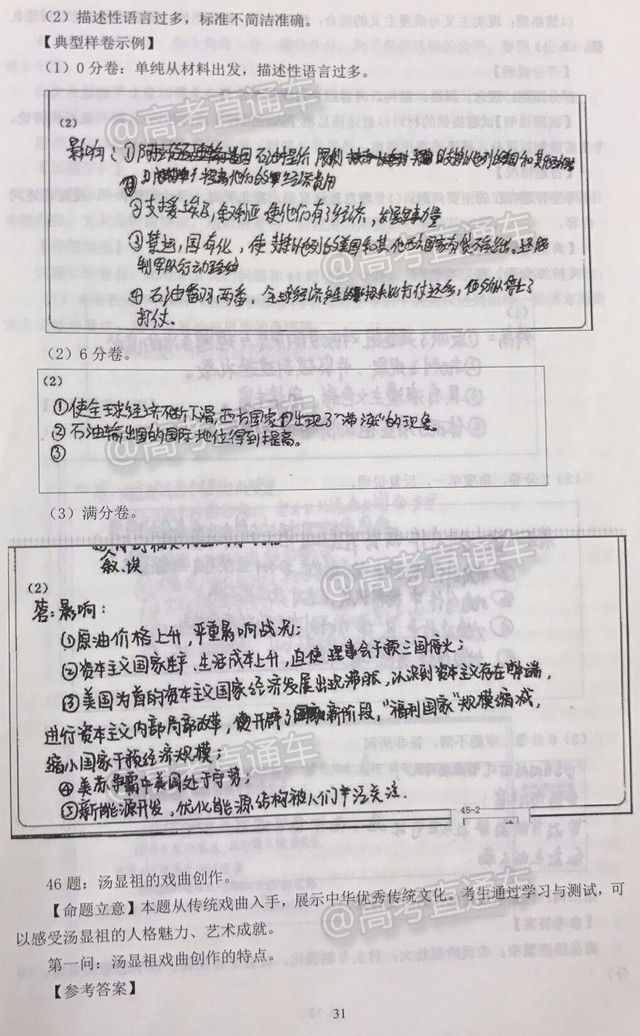 （2）描述性语言过多，标准不简洁准确。
【典型样卷示例】
（1）0 分卷：单纯从材料出发，描述性语言过多。
@高考直通车
(2)
影响：①
②支援埃及、叙利亚 使他们有了经济、
③禁运，国有化，使支持以色列的美国和其他西方国家
制
④石油翻两番，全球经济
打仗。
（2）6 分卷。
(2)
①使全球经济不断下滑，西方国家出现了“滞涨”的现象。
②石油输出国的国际地位得到提高。
③
@高考直通车
（3）满分卷。
叙、埃
@高考直通车
(2)
答：影响：
①原油价格上升，严重影响战况；
②资本主义国家生产、生活成本上升，迫使理事会干预三国停火；
③美国为首的资本主义国家经济发展出现滞胀，认识到资本主义存在弊端，
进行资本主义内部局部改革，开辟了新阶段，“福利国家”规模缩减，
缩小国家干预经济规模；
④美苏争霸中美国处于守势；
⑤新能源开发，优化能源结构被人们广泛关注.
@高考直通车
45-2
46 题：汤显祖的戏曲创作。
【命题立意】本题从传统戏曲入手，展示中华优秀传统文化。考生通过学习与测试，可
以感受汤显祖的人格魅力、艺术成就。
@高考直通车
第一问：汤显祖戏曲创作的特点。
【参考答案】
31